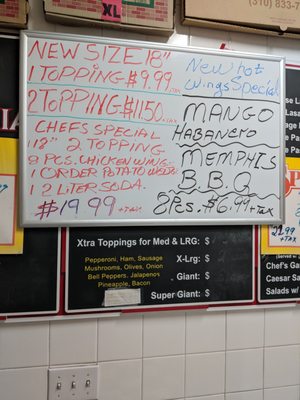 XL
310/833
NEW SIZE 18"
1 TOPPING $9.99 +TAX
2 TOPPING $11.50 +TAX
CHEFS SPECIAL
1 12" 2 TOPPING
8 PCS. CHICKEN WING
1 ORDER POTATO WEDGES
1 2 LITER SODA.
$19.99 +TAX
New hot
wings Special
MANGO
HABANERO
MEMPHIS
B.B.Q
8Pcs. $6.99 +TAX
Xtra Toppings for Med & LRG: $
Pepperoni, Ham, Sausage
Mushrooms, Olives, Onion
Bell Peppers, Jalapeno
Pineapple, Bacon
X-Lrg: $
Giant: $
Super Giant: $
+TAX
Chef's Ga
Caesar Sa
Salads w/